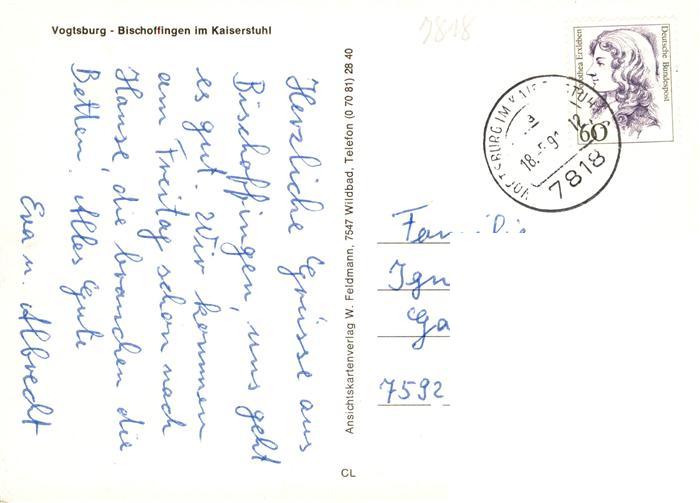 Vogtsburg - Bischoffingen im Kaiserstuhl
Herzliche Grüsse aus
Bischoffingen, uns geht
es gut. Wir kommen
am Freitag schon nach
Hause, die brauchen die
Betten. Alles Gute
Eva u. Albrecht
Ansichtskartenverlag W. Feldmann, 7547 Wildbad, Telefon (0 70 81) 28 40
CL
7818
Deutsche Bundespost
60
VOGTSBURG IM KAISERSTUHL
18.-5.91
7818
Fam
Ign
Ga
7592